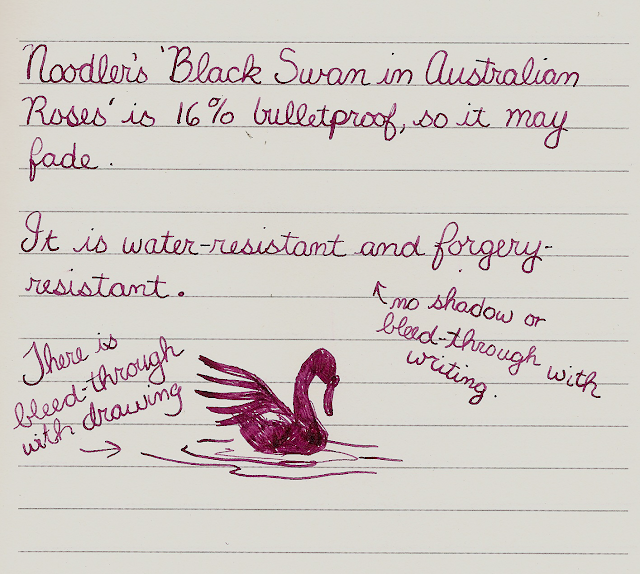 Noodler's 'Black Swan in Australian
Roses' is 16% bulletproof, so it may
fade.
It is water-resistant and forgery-
resistant.
↖ no shadow or
bleed-through with
writing.
There is
bleed-through
with drawing
→